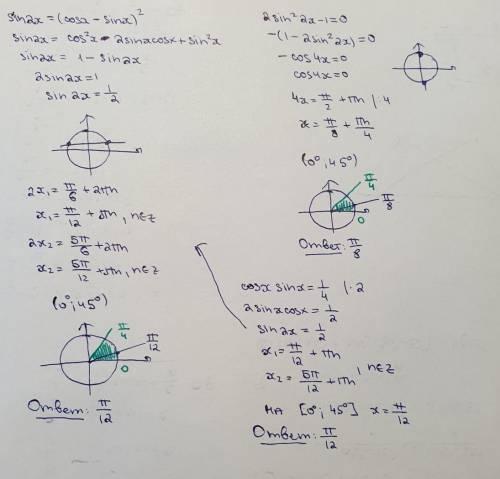 sin2x = (cosx - sinx)²
sin2x = cos²x - 2sinxcosx + sin²x
sin2x = 1 - sin2x
2sin2x = 1
sin 2x = 1/2
2x₁ = π/6 + 2πn
x₁ = π/12 + πn, n∈Z
2x₂ = 5π/6 + 2πn
x₂ = 5π/12 + πn, n∈Z
(0°; 45°)
π/4
π/12
0
Ответ: π/12
2sin²2x - 1 = 0
-(1 - 2sin²2x) = 0
- cos4x = 0
cos4x = 0
4x = π/2 + πn | : 4
x = π/8 + πn/4
(0°; 45°)
π/4
π/8
0
Ответ: π/8
cosx sinx = 1/4 | · 2
2sinxcosx = 1/2
sin2x = 1/2
x₁ = π/12 + πn
x₂ = 5π/12 + πn, n∈Z
на [0°; 45°] x = π/12
Ответ: π/12